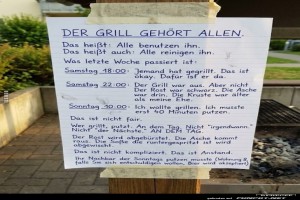 DER GRILL GEHÖRT ALLEN.
Das heißt: Alle benutzen ihn.
Das heißt auch: Alle reinigen ihn.
Was letzte Woche passiert ist:
Samstag 18:00: Jemand hat gegrillt. Das ist
okay. Dafür ist er da.
Samstag 22:00: Der Grill war aus. Aber nicht
Der Rost war schwarz. Die Asche
war drin. Die Kruste war älter
als meine Ehe.
Sonntag 10:00: Ich wollte grillen. Ich musste
erst 40 Minuten putzen.
Das ist nicht fair.
Wer grillt, putzt. An dem Tag. Nicht "irgendwann."
Nicht "der Nächste." AN DEM TAG.
Der Rost wird abgebürstet. Die Asche kommt
raus. Die Soße die runtergespritzt ist wird
abgewischt.
Das ist nicht kompliziert. Das ist Anstand.
Ihr Nachbar der Sonntags putzen musste (Wohnung
falls Sie sich entschuldigen wollen, Bier wird akzeptiert)